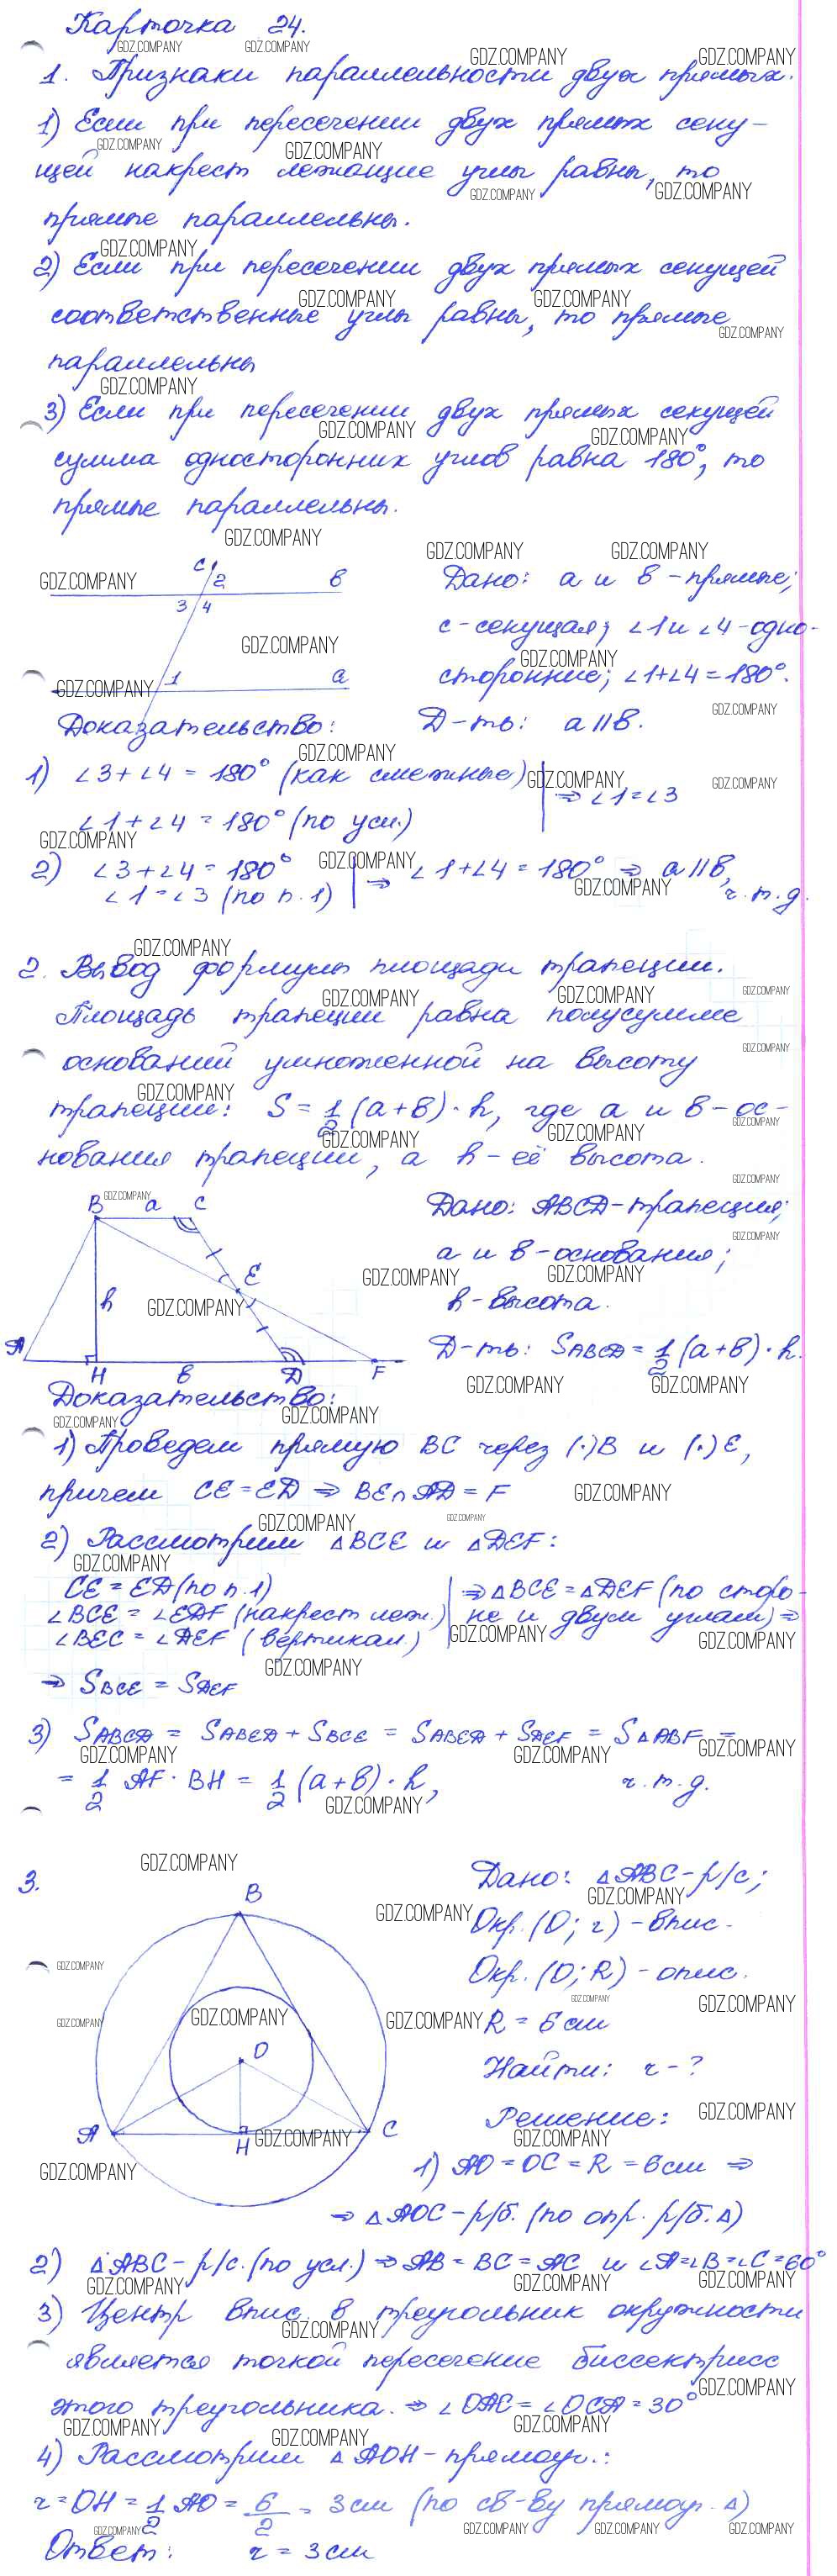 Карточка 24.
1. Признаки параллельности двух прямых.
1) Если при пересечении двух прямых секу-
щей накрест лежащие углы равны, то
прямые параллельны.
2) Если при пересечении двух прямых секущей
соответственные углы равны, то прямые
параллельны
3) Если при пересечении двух прямых секущей
сумма односторонних углов равна 180°, то
прямые параллельны.
c 2 b
3 4
1 a
Дано: a и b - прямые;
c - секущая; ∠1 и ∠4 - одно-
сторонние; ∠1+∠4 = 180°.
Д-ть: a || b.
Доказательство:
1) ∠3+∠4 = 180° (как смежные)
∠1+∠4 = 180° (по усл.)
⇒ ∠1=∠3
2) ∠3+∠4 = 180°
∠1=∠3 (по п.1)
⇒ ∠1+∠4 = 180° ⇒ a || b,
ч.т.д.
2. Вывод формулы площади трапеции.
Площадь трапеции равна полусумме
оснований умноженной на высоту
трапеции: S = 1/2 (a+b)·h, где a и b - ос-
нования трапеции, а h - её высота.
B a C
E
h
A H b D F
Дано: ABCD - трапеция;
a и b - основания;
h - высота.
Д-ть: SABCD = 1/2 (a+b)·h.
Доказательство:
1) Проведем прямую BC через (·)B и (·)E,
причем CE = ED ⇒ BE∩AD = F
2) Рассмотрим △BCE и △DEF:
CE = ED (по п.1)
∠BCE = ∠EDF (накрест леж.)
∠BEC = ∠DEF (вертикал.)
⇒ △BCE = △DEF (по сторо-
не и двум углам) ⇒
⇒ SBCE = SDEF
3) SABCD = SABED + SBCE = SABED + SDEF = S△ABF =
= 1/2 AF · BH = 1/2 (a+b)·h,
ч.т.д.
3.
B
O
A H C
Дано: △ABC - р/с;
Окр. (O; r) - впис.
Окр. (O; R) - опис.
R = 6 см
Найти: r - ?
Решение:
1) AO = OC = R = 6 см ⇒
⇒ △AOC - р/б. (по опр. р/б. △)
2) △ABC - р/с. (по усл.) ⇒ AB = BC = AC и ∠A=∠B=∠C=60°
3) Центр впис. в треугольник окружности
является точкой пересечение биссектрисс
этого треугольника. ⇒ ∠OAC = ∠OCA = 30°
4) Рассмотрим △AOH - прямоуг.:
r = OH = 1/2 AO = 6/2 = 3 см (по св-ву прямоуг. △)
Ответ: r = 3 см
GDZ.COMPANY